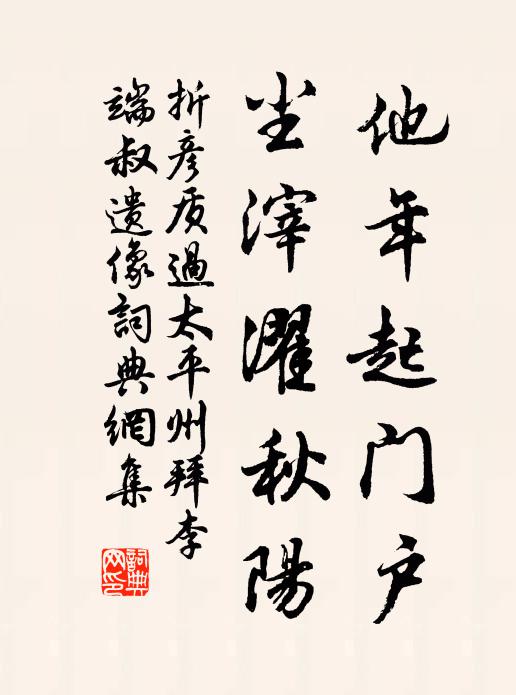 他年起门户
尘滓濯秋陽
折彦质過太平州拜李
端叔遺像詞典網集
詞典网印